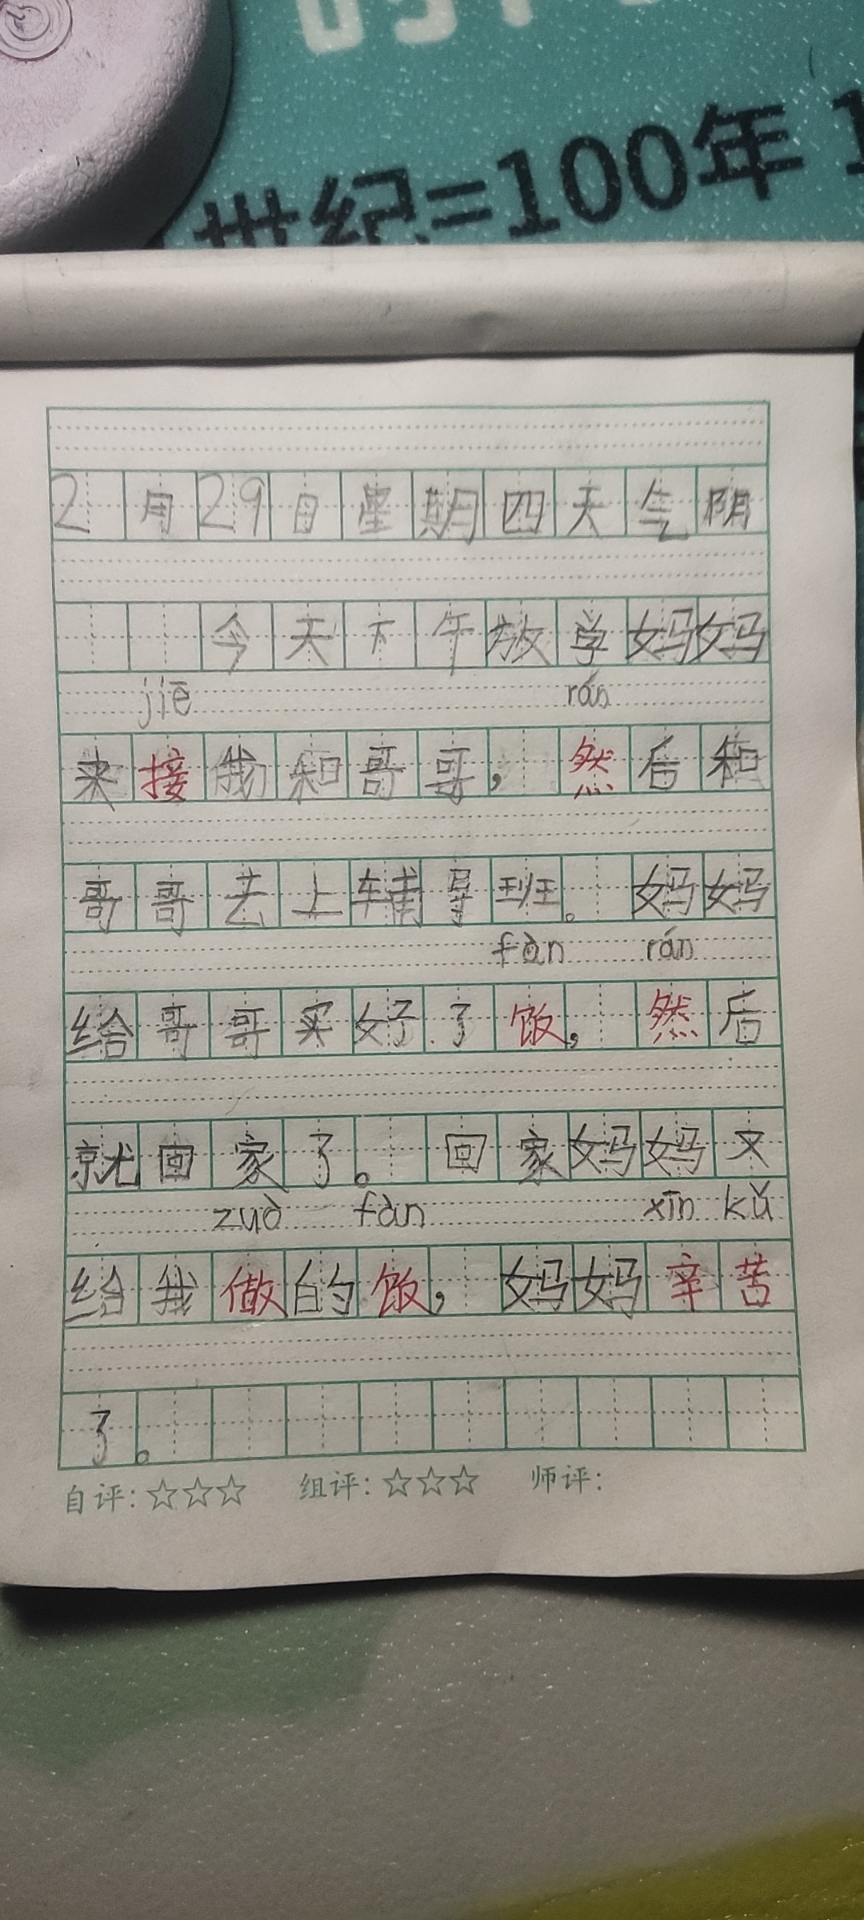 世纪=100年 1
2月29日星期四天气阴
今天下午放学妈妈
jiē rán
来接我和哥哥，然后和
哥哥去上辅导班。妈妈
fàn rán
给哥哥买好了饭，然后
就回家了。回家妈妈又
zuò fàn xīn kǔ
给我做的饭，妈妈辛苦
了。
自评：☆☆☆ 组评：☆☆☆ 师评：